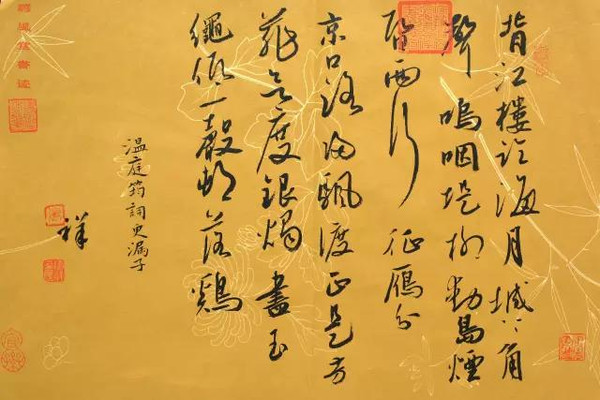 背江樓臨海月城上角
聲嗚咽堤柳動島煙
昏兩行征鴈分
京口路歸颿渡正是芳
菲欲度銀燭盡玉
繩低一聲村落鷄
溫庭筠詞更漏子
祥